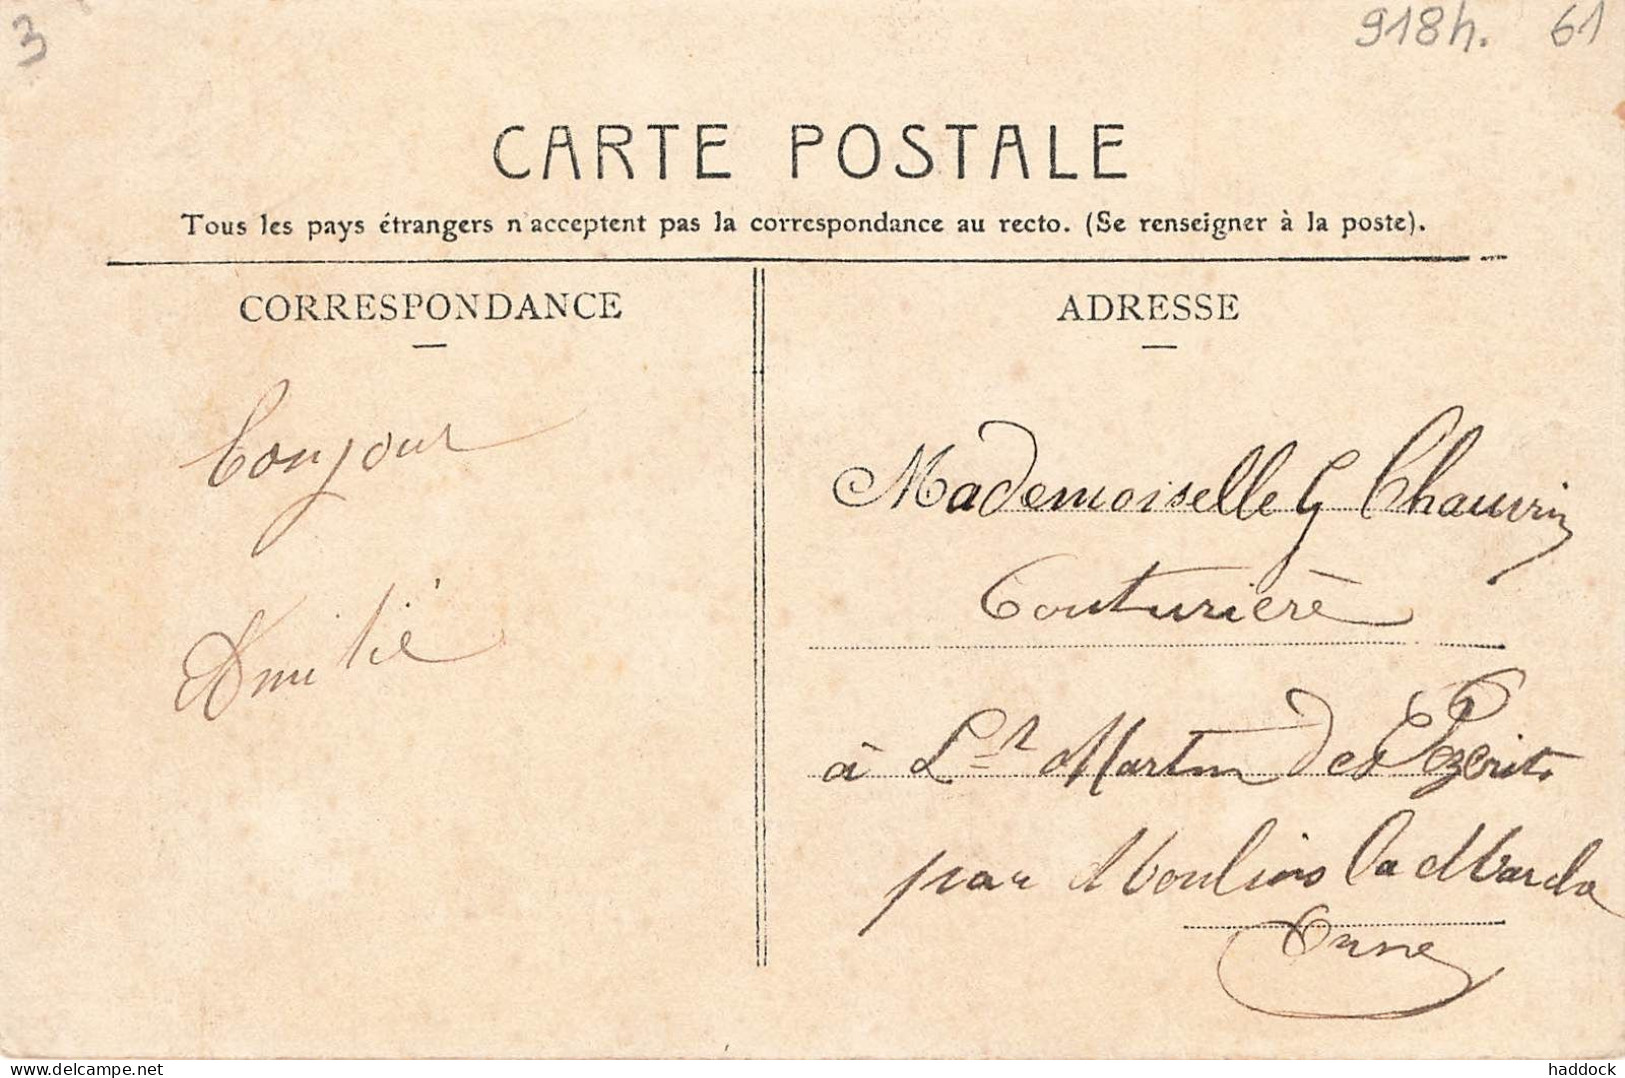 3
918h. 61
CARTE POSTALE
Tous les pays étrangers n'acceptent pas la correspondance au recto. (Se renseigner à la poste).
CORRESPONDANCE
Bonjour
Amitié
ADRESSE
Mademoiselle G Chauvin
Couturière
à St Martin des Pézerits
par Moulins la Marche
Orne
www.delcampe.net
haddock